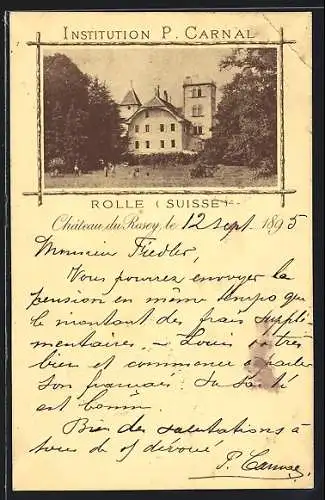 INSTITUTION P. CARNAL
ROLLE (SUISSE)
Château du Rosey, le 12 sept. 1895
Monsieur Fiedler,
Vous pourrez envoyer la
pension en même temps que
le montant des frais supplé-
mentaires. – Louis va très
bien et commence à parler
son français. Sa santé
est bonne.
Bien des salutations à
tous de v/ dévoué
P. Carnal